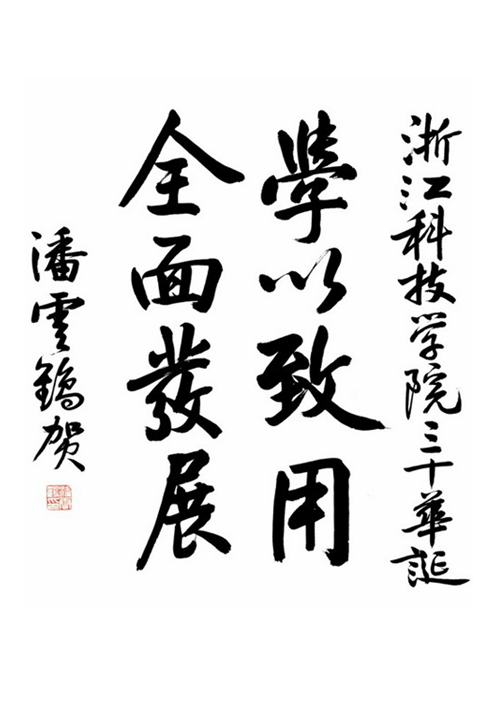 浙江科技学院三十華誕
學以致用
全面發展
潘雲鶴賀